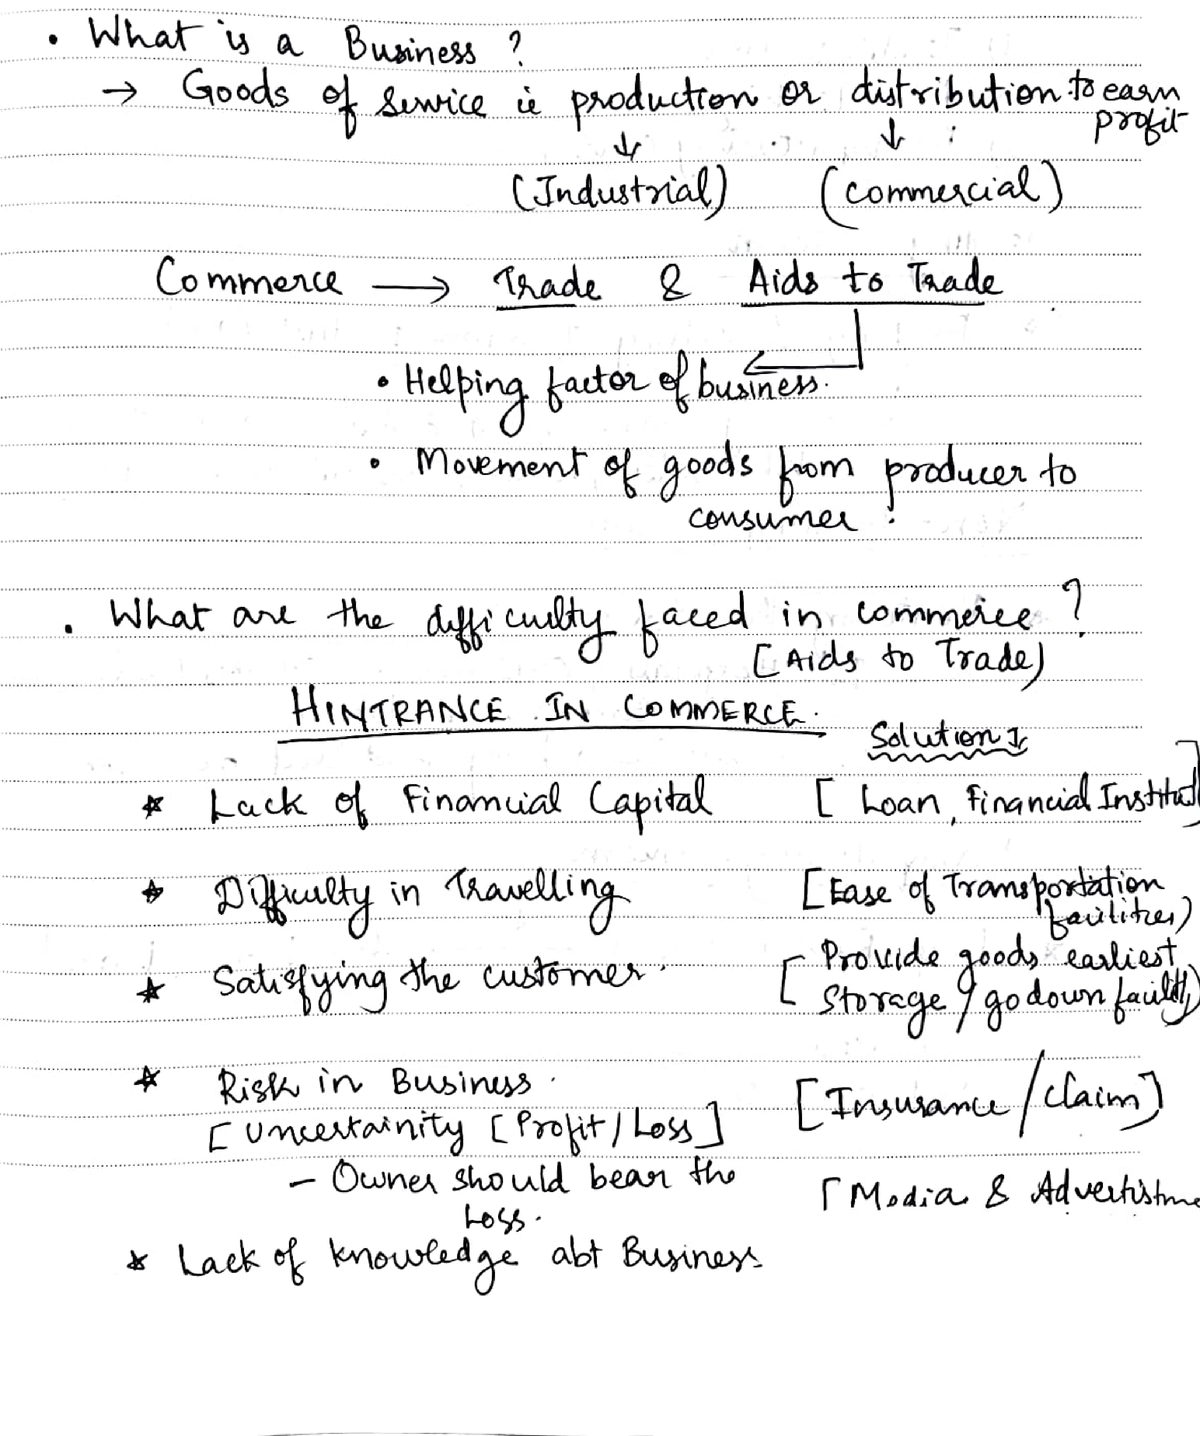 • What is a Business ?
→ Goods of service ie production or distribution to earn profit
↓ ↓
(Industrial) (commercial)
Commerce → Trade & Aids to Trade
• Helping factor of business.
• Movement of goods from producer to
consumer.
• What are the difficulty faced in commerce ?
[Aids to Trade)
HINTRANCE IN COMMERCE.
Solution
* Lack of Financial Capital [ Loan, Financial
* Difficulty in Travelling [Ease of Transportation
facilities)
* Satisfying the customer. [ Provide goods earliest
Storage / godown facility)
* Risk in Business. [Insurance/claim]
[ Uncertainity [Profit/Loss]
- Owner should bear the
Loss. [Media & 
* Lack of knowledge abt Business